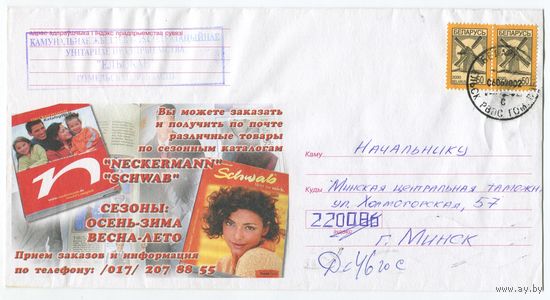 адрас адпраўшчыка і індэкс прадпрыемства сувязі
КАМУНАЛЬНАЕ
УНІТАРНАЕ ПРАДПРЫЕМСТВА
БЕЛАРУСЬ
БЕЛАРУСЬ
2000
60
60
Вы можете заказать
и получить по почте
различные товары
по сезонным каталогам
"NECKERMANN"
"SCHWAB"
СЕЗОНЫ:
ОСЕНЬ-ЗИМА
ВЕСНА-ЛЕТО
Прием заказов и информация
по телефону: /017/ 207 88 55
n
Schwab
Каму Начальнику
Куды Минская центральная таможня
ул. Холмогорская, 57
220086
г. Минск
www.ay.by